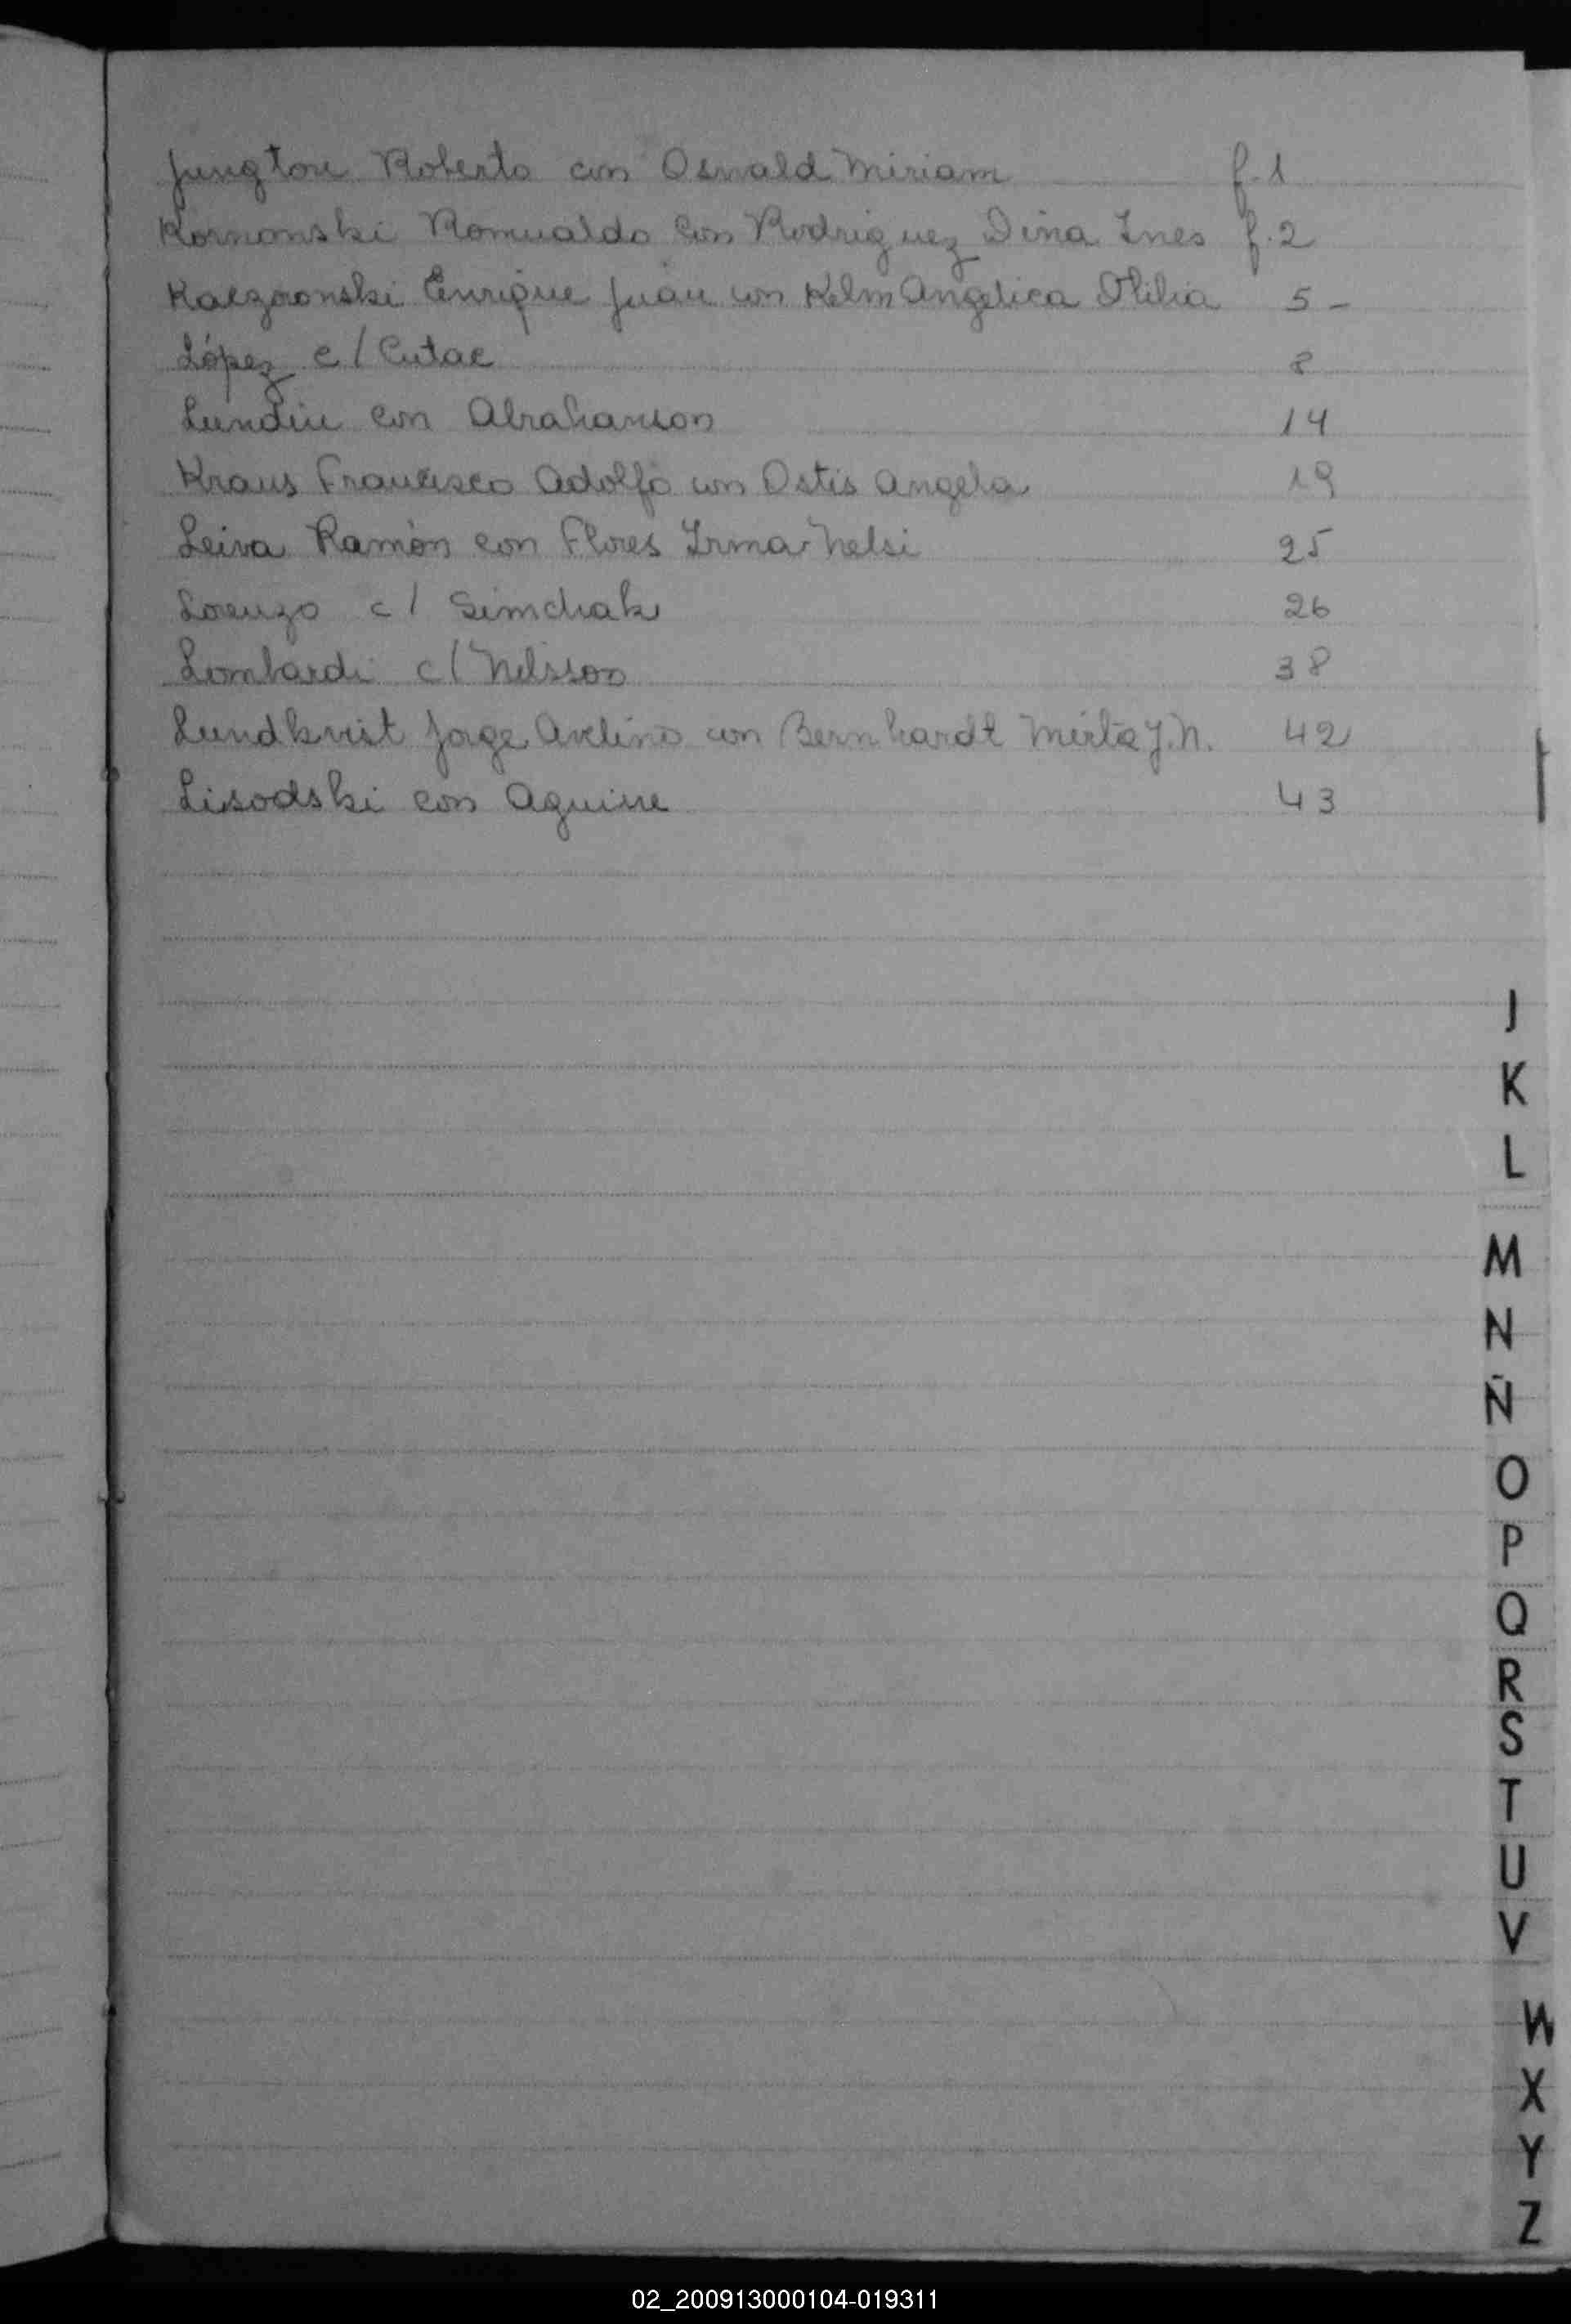 Jungton Roberto con Oswald Miriam f. 1
Kornonski Romualdo con Rodriguez Dina Ines f. 2
Kaczoronski Enrique Juan con Kelm Angelica Otilia 5 -
López c/ Cutac 8
Lundin con Abrahanson 14
Kraus Francisco Adolfo con Ostis Angela 19
Leiva Ramón con Flores Irma Nelsi 25
Lorenzo c/ Simchak 26
Lombardi c/ Nelsson 38
Lundkvist Jorge Avelino con Bernhardt Mirta J. N. 42
Lisodski con Aguirre 43
J
K
L
M
N
Ñ
O
P
Q
R
S
T
U
V
W
X
Y
Z
02_200913000104-019311